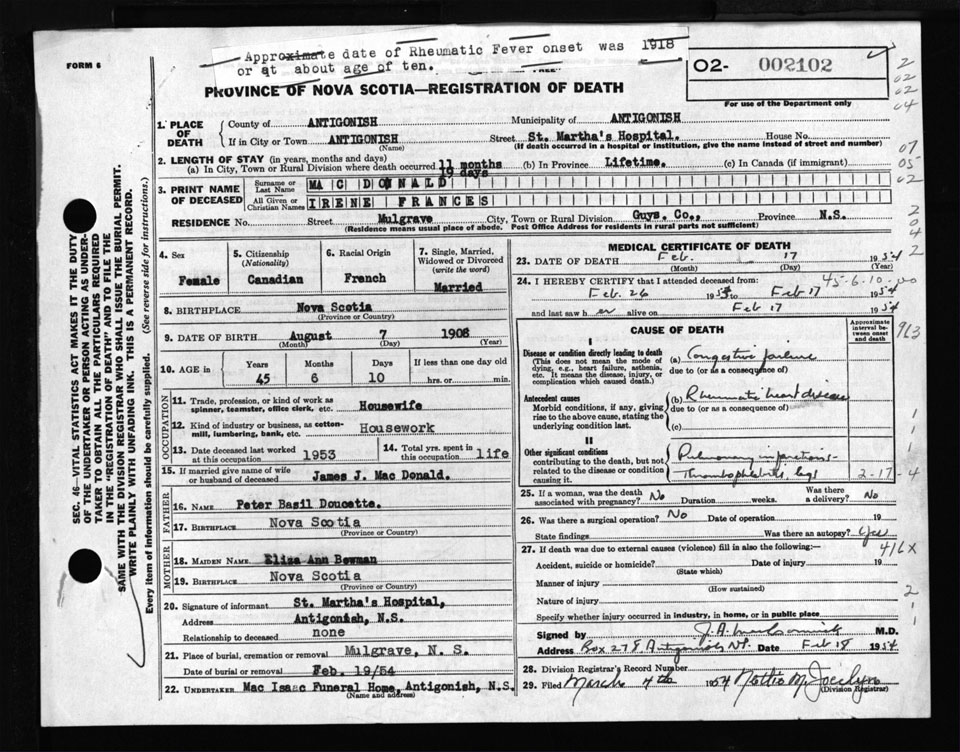 Approximate date of Rheumatic Fever onset was 1918
or at about age of ten.
FORM 6
O2- 002102
For use of the Department only
PROVINCE OF NOVA SCOTIA—REGISTRATION OF DEATH
1. PLACE OF DEATH
County of ANTIGONISH Municipality of ANTIGONISH
If in City or Town ANTIGONISH Street St. Martha's Hospital. House No.
(Name) (If death occurred in a hospital or institution, give the name instead of street and number)
2. LENGTH OF STAY (in years, months and days)
(a) In City, Town or Rural Division where death occurred 11 months 19 days (b) In Province Lifetime. (c) In Canada (if immigrant)
3. PRINT NAME OF DECEASED
Surname or Last Name MAC DONALD
All Given or Christian Names IRENE FRANCES
RESIDENCE No. Street Mulgrave City, Town or Rural Division Guys. Co., Province N.S.
(Residence means usual place of abode. Post Office Address for residents in rural parts not sufficient)
4. Sex Female
5. Citizenship (Nationality) Canadian
6. Racial Origin French
7. Single, Married, Widowed or Divorced (write the word) Married
8. BIRTHPLACE Nova Scotia
(Province or Country)
9. DATE OF BIRTH August 7 1908
(Month) (Day) (Year)
10. AGE in Years 45 Months 6 Days 10 If less than one day old hrs. or min.
OCCUPATION
11. Trade, profession, or kind of work as spinner, teamster, office clerk, etc. Housewife
12. Kind of industry or business, as cotton-mill, lumbering, bank, etc. Housework
13. Date deceased last worked at this occupation 1953
14. Total yrs. spent in this occupation life
15. If married give name of wife or husband of deceased James J. Mac Donald.
FATHER
16. NAME Peter Basil Doucette.
17. BIRTHPLACE Nova Scotia
(Province or Country)
MOTHER
18. MAIDEN NAME Eliza Ann Bowman
19. BIRTHPLACE Nova Scotia
(Province or Country)
20. Signature of informant St. Martha's Hospital,
Address Antigonish, N.S.
Relationship to deceased none
21. Place of burial, cremation or removal Mulgrave, N. S.
Date of burial or removal Feb. 19/54
22. UNDERTAKER Mac Isaac Funeral Home, Antigonish, N.S.
(Name and address)
MEDICAL CERTIFICATE OF DEATH
23. DATE OF DEATH Feb. 17 1954
(Month) (Day) (Year)
24. I HEREBY CERTIFY that I attended deceased from
Feb. 26 1953 to Feb 17 1954
and last saw her alive on Feb 17 1954
CAUSE OF DEATH
Approximate interval between onset and death
I
Disease or condition directly leading to death
(This does not mean the mode of dying, e.g., heart failure, asthenia, etc. It means the disease, injury, or complication which caused death.)
(a) Congestive failure
due to (or as a consequence of)
Antecedent causes
Morbid conditions, if any, giving rise to the above cause, stating the underlying condition last.
(b) Rheumatic heart disease
due to (or as a consequence of)
(c)
II
Other significant conditions
contributing to the death, but not related to the disease or condition causing it.
Pulmonary infarctions
Thrombophlebitis, legs
25. If a woman, was the death associated with pregnancy? No Duration weeks. Was there a delivery? No
26. Was there a surgical operation? No Date of operation 19
State findings Was there an autopsy? Yes
27. If death was due to external causes (violence) fill in also the following:—
Accident, suicide or homicide? Date of injury 19
(State which)
Manner of injury
(How sustained)
Nature of injury
Specify whether injury occurred in industry, in home, or in public place
Signed by J.A. MacCormick M.D.
Address Box 278 Antigonish NS. Date Feb 18 1954
28. Division Registrar's Record Number
29. Filed March 4th 1954 Nettie M. Jocelyn
(Division Registrar)
SEC. 46—VITAL STATISTICS ACT MAKES IT THE DUTY
OF THE UNDERTAKER OR PERSON ACTING AS UNDER-
TAKER TO OBTAIN ALL THE PARTICULARS REQUIRED
IN THE "REGISTRATION OF DEATH" AND TO FILE THE
SAME WITH THE DIVISION REGISTRAR WHO SHALL ISSUE THE BURIAL PERMIT.
WRITE PLAINLY WITH UNFADING INK. THIS IS A PERMANENT RECORD.
Every item of information should be carefully supplied. (See reverse side for instructions.)
2
02
02
04
07
05
02
2
0
4
2
45-6-10-00
963
1
1
2-17-4
416X
2
1